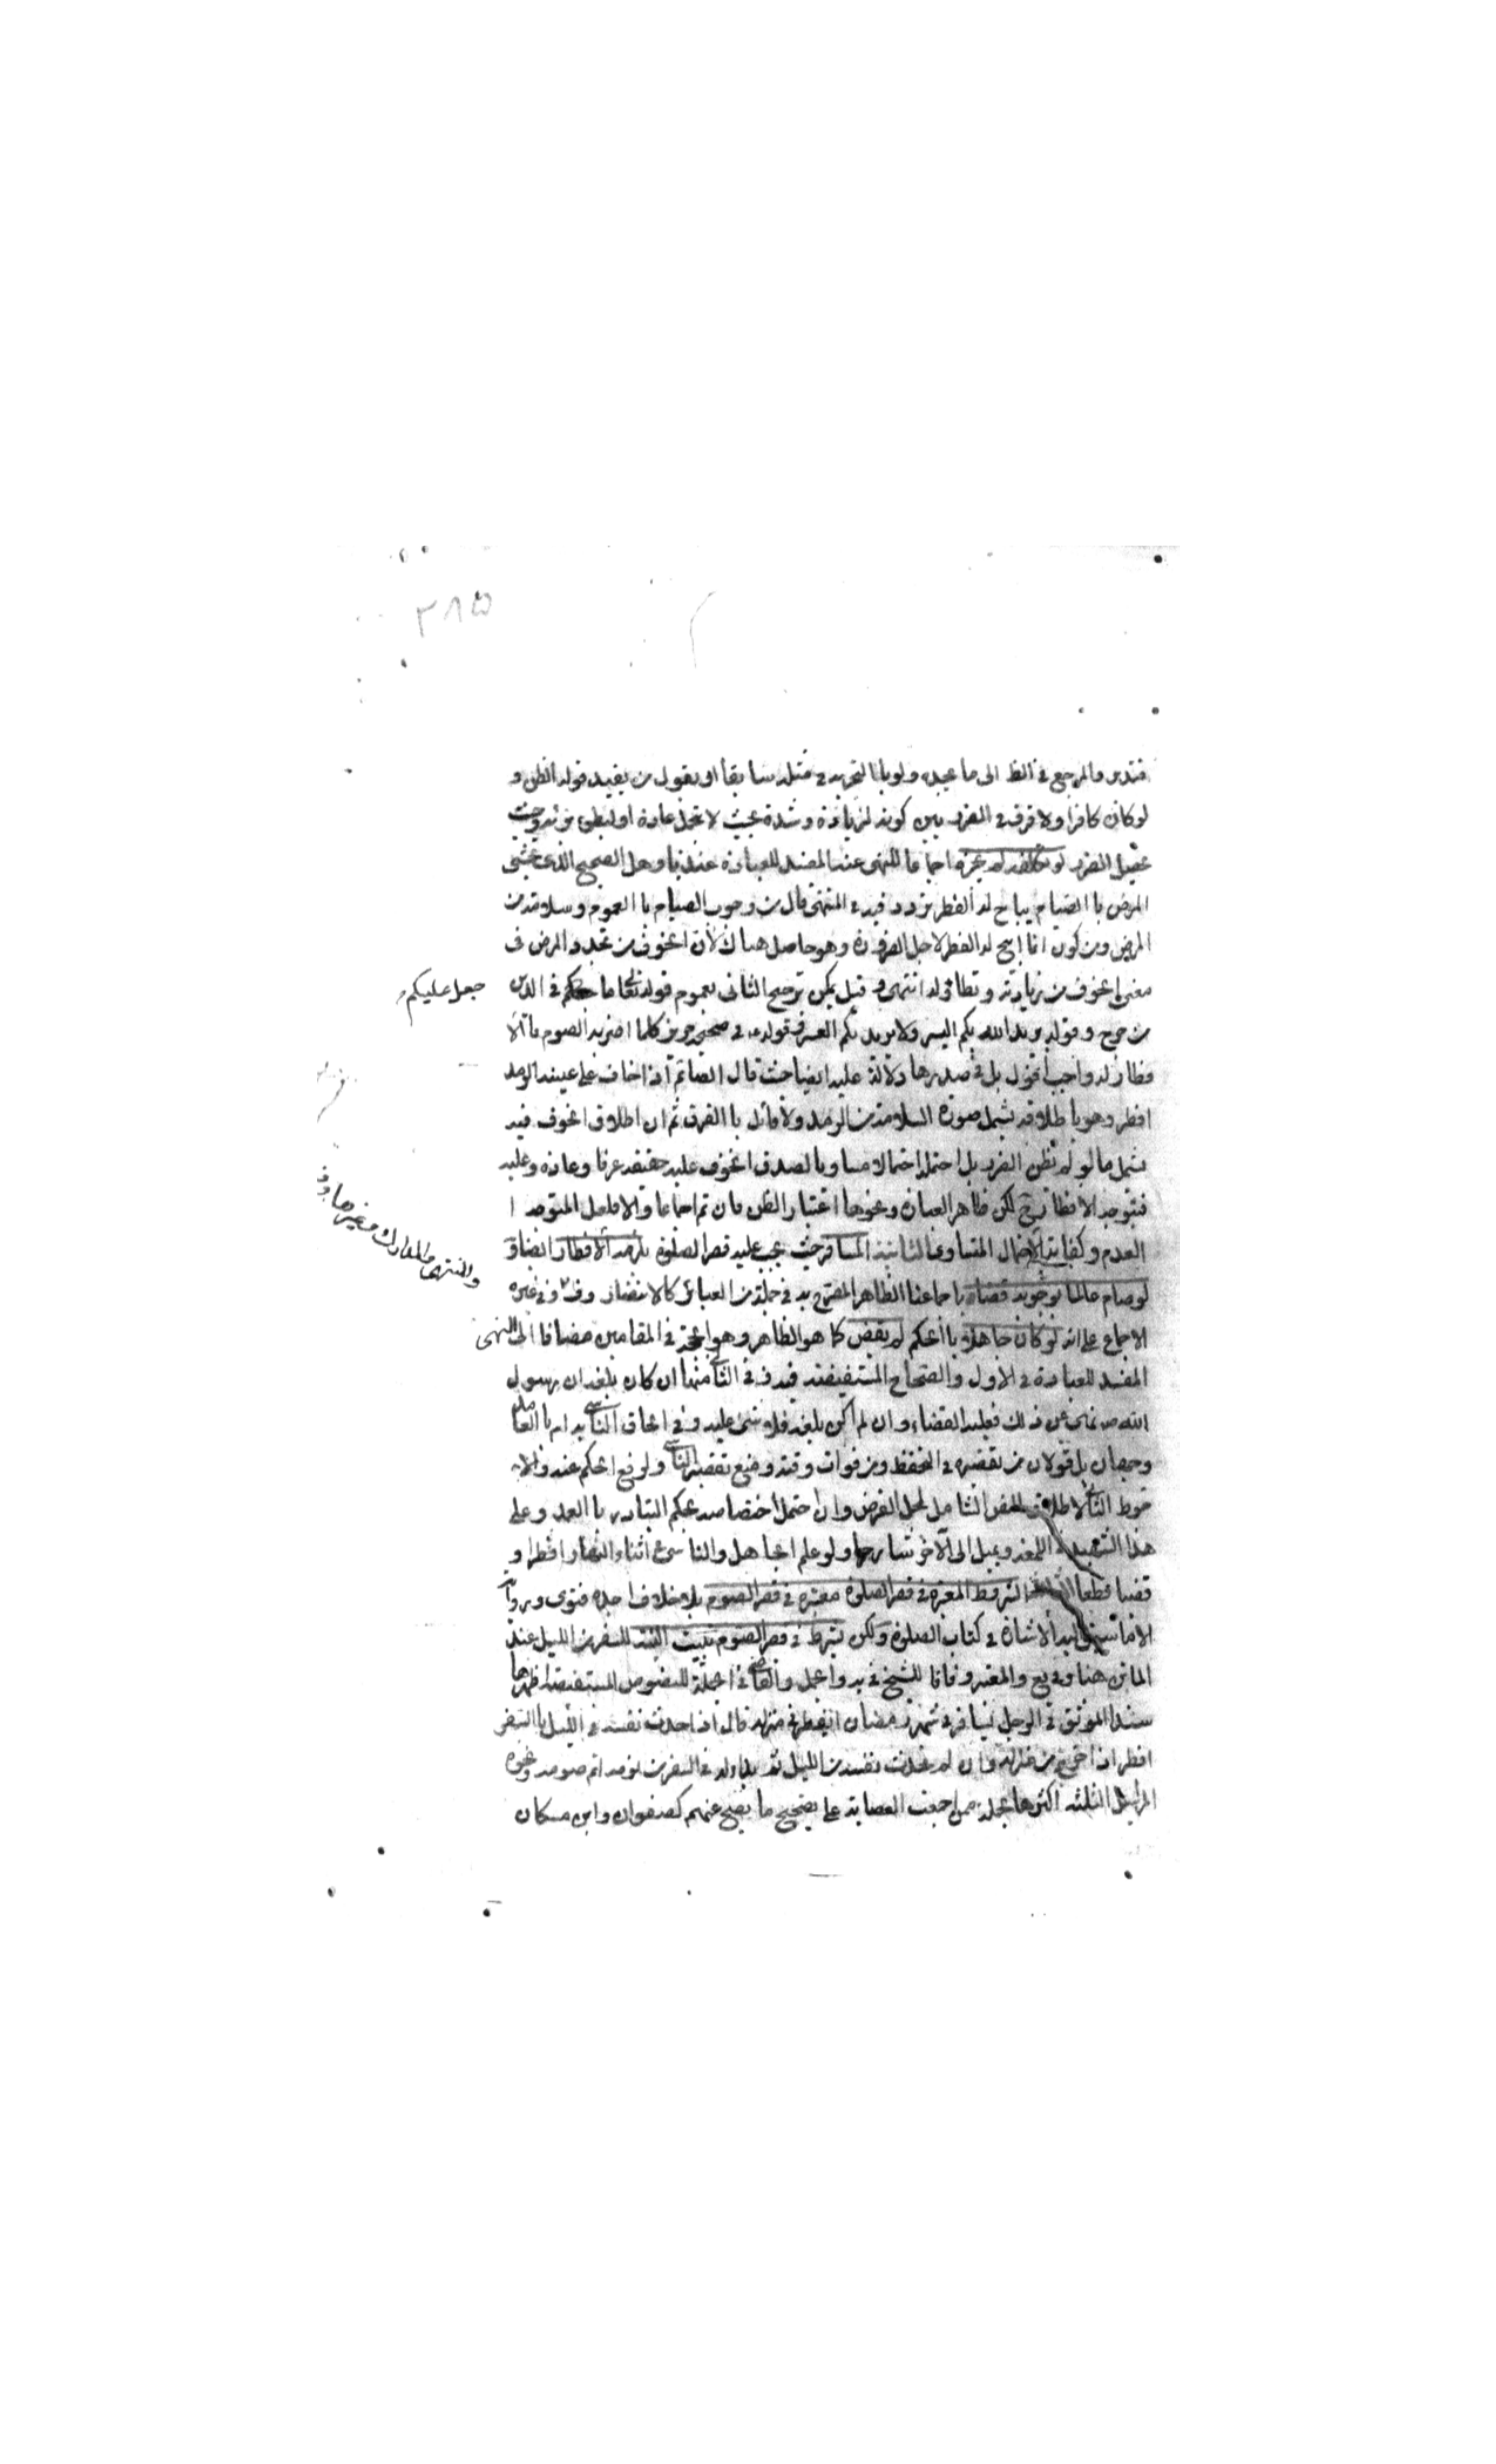 ٣٨٥
فتدبر والمرجع في الظن الى ما يجده ولو با التجربة في مثله سابقا او بقول من يفيد قوله الظن و
لو كان كافرا ولا فرق في الضرر بين كونه لزيادة وشدة بحيث لا تتحمل عادة او لبطؤ برئه وحيث
يحصل الضرر لو تكلفه لم يجزه اجماعا للنهى عنه المفسد للعبادة عندنا وهل الصحيح الذى يخشى
المرض با الصيام يباح له الفطر تردد فيه في المنتهى قال من وجوب الصيام با العموم وسلامته من
المرض ومن كون انما ابيح له الفطر لاجل الضرورة وهو حاصل هنا لأن الخوف من تجدد المرض في
معنى الخوف من زيادته وتطاوله انتهى و قيل يمكن ترجيح الثانى بعموم قوله تعالى ما حكم في الدين
جعل عليكم
من حرج وقوله يريد الله بكم اليسر ولا يريد بكم العسر وقوله في صحيح حريز كلما اضر به الصوم فا الا
فطار له واجب اقول بل في صدرها دلالة عليه ايضا حيث قال الصائم اذا خاف على عينه الرمد
افطر وهو با طلاقه يشمل صورة السلامة من الرمد ولا قائل با الفرق ثم ان اطلاق الخوف فيه
يشمل ما لو لم يظن الضرر بل احتمله احتمالا مساويا لصدق الخوف عليه حقيقة عرفا وعادة وعليه
فيتوجه الافطار ح لكن ظاهر العبارة ونحوها اعتبار الظن فان تم اجماعا والا فلعل المتوجه
العدم وكفاية الاحتمال المتساوى الثانية المسافر حيث يجب عليه قصر الصلوة يلزمه الافطار ايضا و
لو صام عالما بوجوبه قضاه باجماعنا الظاهر المصرح به في جملة من العبائر كالانتصار وف وفي غيره
والمنتهى والمدارك وغيرها
الاجماع على انه لو كان جاهلا با الحكم لم يقض كما هو الظاهر وهو الحجة في المقامين مضافا الى النهى
المفسد للعبادة في الاول والصحاح المستفيضة فيه وفي الثانى منها ان كان بلغه ان رسول
الله ص نهى عن ذلك فعليه القضاء وان لم يكن بلغه فلا شئ عليه وفي الحاق الناسى به ام با العامد
وجهان بل قولان من تقصيره في التحفظ ومن فوات وقته ومنع تقصير الناسى ولرفع الحكم عنه والا
حوط الثانى لاطلاق النص الشامل لمحل الفرض وان احتمل اختصاصه بحكم التبادر با العمد وعلى
هذا الشهيد في اللمعة ويميل الى الآخر شارحها ولو علم الجاهل والناسى في اثناء النهار افطرا و
قضيا قطعا الثالثة الشروط المعتبرة في قصر الصلوة معتبرة في قصر الصوم بلا خلاف اجده فتوى ورواية
الا ما سبق اليه الاشارة في كتاب الصلوة ولكن يشترط في قصر الصوم تبييت النية للسفر من الليل عند
الماتن هنا وفي يع والمعتبر وفاقا للشيخ في يه والجمل والقاضى في الجملة للنصوص المستفيضة اظهرها
سندا الموثق في الرجل يسافر في شهر رمضان ايفطر في منزله قال اذا حدث نفسه في الليل با السفر
افطر اذا خرج من منزله وان لم يحدث نفسه من الليل ثم بدا له في السفر من يومه اتم صومه ونحوه
المراسيل الثلثة اكثرها بجملة ممن اجمعت العصابة على تصحيح ما يصح عنهم كصفوان وابن مسكان